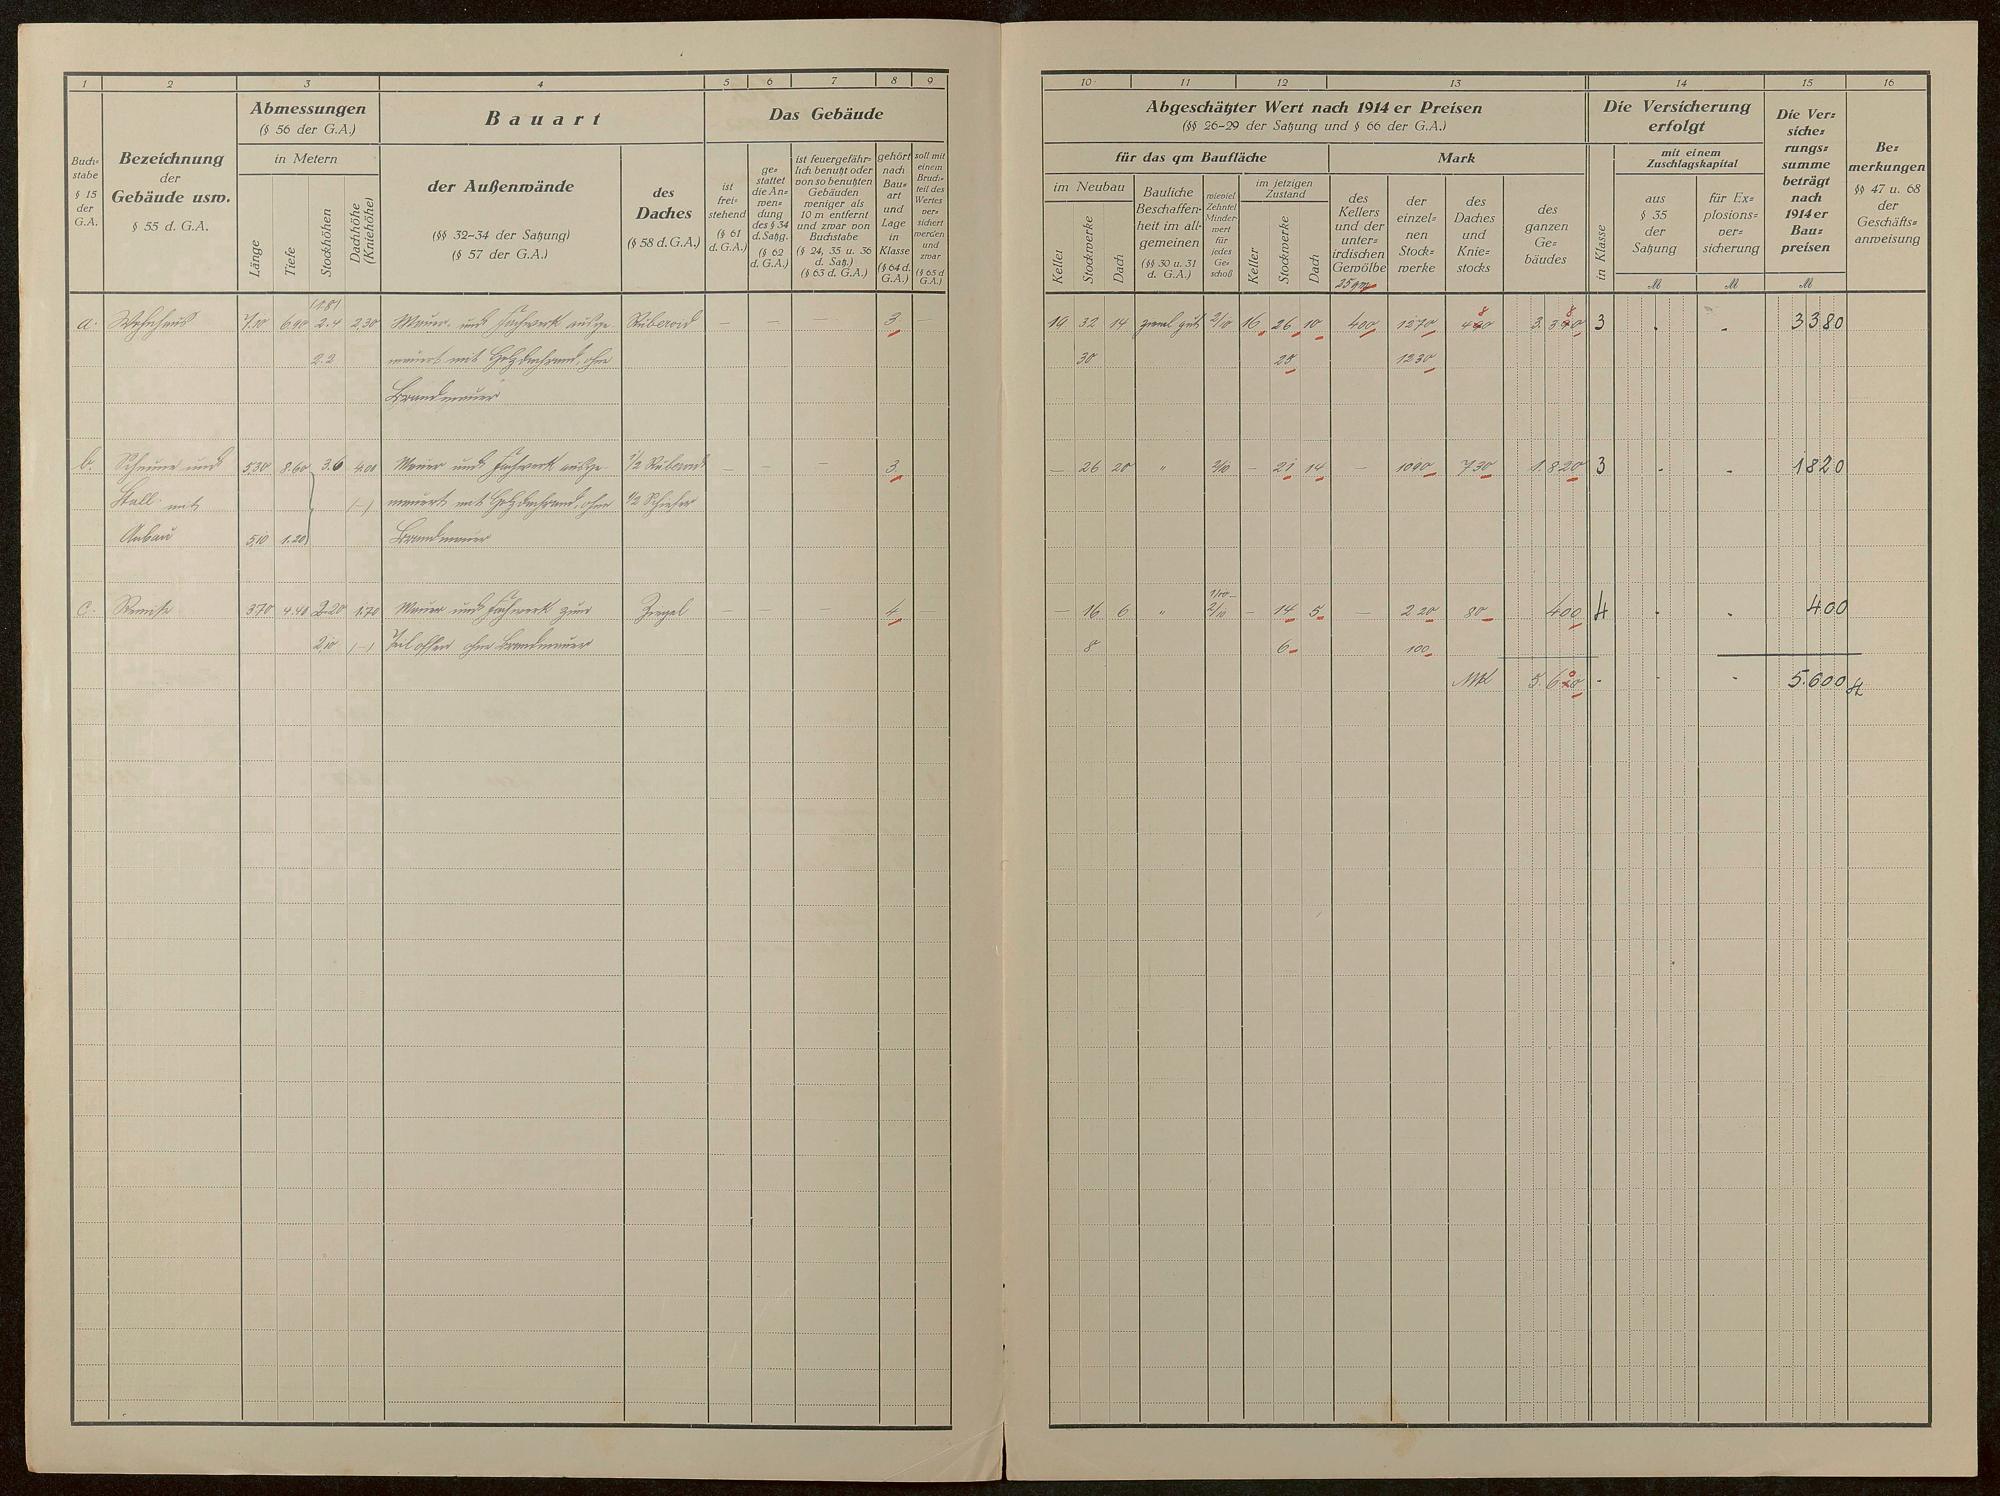 1 2 3 4 5 6 7 8 9
Buch=
stabe
§ 15
der
G.A.
Bezeichnung
der
Gebäude usw.
§ 55 d. G.A.
Abmessungen
(§ 56 der G.A.)
in Metern
Länge
Tiefe
Stockhöhen
Dachhöhe
(Kniehöhe)
Bauart
der Außenwände
(§§ 32-34 der Satzung)
(§ 57 der G.A.)
des
Daches
(§ 58 d. G.A.)
Das Gebäude
ist
frei=
stehend
(§ 61
d. G.A.)
ge=
stattet
die An=
wen=
dung
des § 34
d. Satzg.
(§ 62
d. G.A.)
ist feuergefähr=
lich benutzt oder
von so benutzten
Gebäuden
weniger als
10 m entfernt
und zwar von
Buchstabe
(§ 24, 35 u. 36
d. Satz.)
(§ 63 d. G.A.)
gehört
nach
Bau=
art
und
Lage
in
Klasse
(§ 64 d.
G.A.)
soll mit
einem
Bruch=
teil des
Wertes
ver=
sichert
werden
und
zwar
(§ 65 d
G.A.)
(1.81)
a. Wohnhaus 7.10 6.90 2.4 2,30 Mauer- und Fachwerk ausge- Ruberoid — — — 3 —
2.2 mauert mit Holzdachrand, ohne
Brandmauer
b. Scheune und 5.30 8.60 3.6 4.00 Mauer und Fachwerk ausge- 1/2 Ruberoid — — — 3
Stall mit (—) mauert mit Holzdachrand, ohne 1/2 Schiefer
Anbau 5,10 1.20 Brandmauer
c. Remise 3.70 4.40 2.20 1.70 Mauer und Fachwerk zum Ziegel — — — 4 —
2,10 (—) Teil offen ohne Brandmauer
10 11 12 13 14 15 16
Abgeschätzter Wert nach 1914 er Preisen
(§§ 26-29 der Satzung und § 66 der G.A.)
für das qm Baufläche
Mark
im Neubau
Keller
Stockwerke
Dach
Bauliche
Beschaffen=
heit im all=
gemeinen
(§§ 30 u. 31
d. G.A.)
wieviel
Zehntel
Minder=
wert
für
jedes
Ge=
schoß
im jetzigen
Zustand
Keller
Stockwerke
Dach
des
Kellers
und der
unter=
irdischen
Gewölbe
25 qm
der
einzel=
nen
Stock=
werke
des
Daches
und
Knie=
stocks
des
ganzen
Ge=
bäudes
Die Versicherung
erfolgt
in Klasse
mit einem
Zuschlagskapital
aus
§ 35
der
Satzung
M
für Ex=
plosions=
ver=
sicherung
M
Die Ver=
siche=
rungs=
summe
beträgt
nach
1914 er
Bau=
preisen
M
Be=
merkungen
§§ 47 u. 68
der
Geschäfts=
anweisung
19 32 14 ziemal gut 2/10 16 26 10 400 1270 480 3.380 3 - - 3380
30 25 1230
— 26 20 " 2/10 — 21 14 — 1090 730 1.820 3 - - 1820
1/10 —
— 16 6 " 2/10 — 14 5 — 220 80 400 4 - - 400
8 6 100
Mk 5.600 - - - 5.600